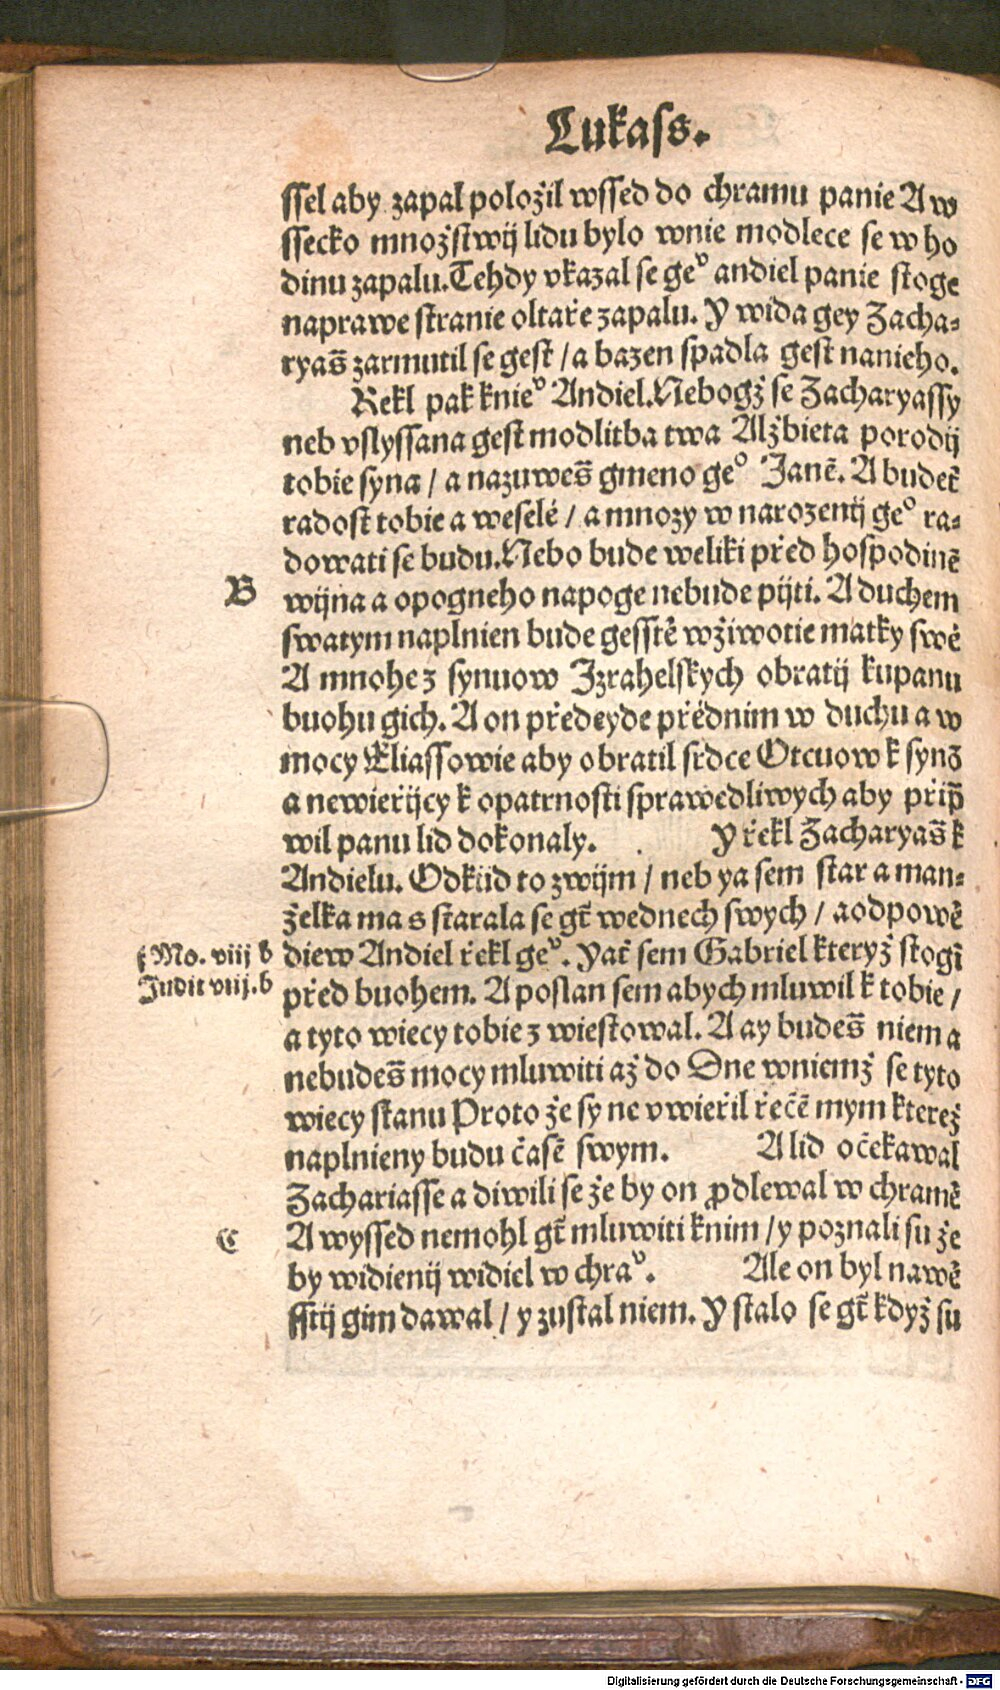 Lukass.
ssel aby zapal položil wssed do chramu panie A w
ssecko množstwij lidu bylo wnie modlece se w ho
dinu zapalu. Tehdy vkazal se geͮ andiel panie stoge
naprawe stranie oltaře zapalu. Y wida gey Zacha⸗
ryas̃ zarmutil se gest / a bazen spadla gest nanieho.
Rekl pak knieͮ Andiel. Nebogž se Zacharyassy
neb vslyssana gest modlitba twa Alžbieta porodij
tobie syna / a nazuwes̃ gmeno geͦ Janē. A budeť
radost tobie a weselé / a mnozy w narozenij geͦ ra⸗
dowati se budu. Nebo bude weliki před hospodinē
B
wijna a opogneho napoge nebude pijti. A duchem
swatym naplnien bude gesstē wžiwotie matky swé
A mnohe z synuow Izrahelskych obratij kupanu
buohu gich. A on předeyde přědnim w duchu a w
mocy Eliassowie aby obratil srdce Otcuow k synō
a newieřijcy k opatrnosti sprawedliwych aby přip̄
wil panu lid dokonaly. Y řekl Zacharyas̃ k
Andielu. Odkud to zwijm / neb ya sem star a man⸗
želka ma s starala se gt̃ wednech swych / aodpowē
ť Mo. viij b
Judit viij. b
diew Andiel řekl geͮ. Yať sem Gabriel kteryž stogī
před buohem. A poslan sem abych mluwil k tobie /
a tyto wiecy tobie z wiestowal. A ay budes̃ niem a
nebudes̃ mocy mluwiti až do Dne wniemž se tyto
wiecy stanu Proto že sy ne vwieřil řečē mym kterež
naplnieny budu časē swym. A lid očekawal
Zachariasse a diwili se že by on ꝓdlewal w chramē
C
A wyssed nemohl gt̃ mluwiti knim / y poznali su že
by widienij widiel w chraͮ. Ale on byl nawē
sstij gim dawal / y zustal niem. Y stalo se gt̃ když su
Digitalisierung gefördert durch die Deutsche Forschungsgemeinschaft - DFG